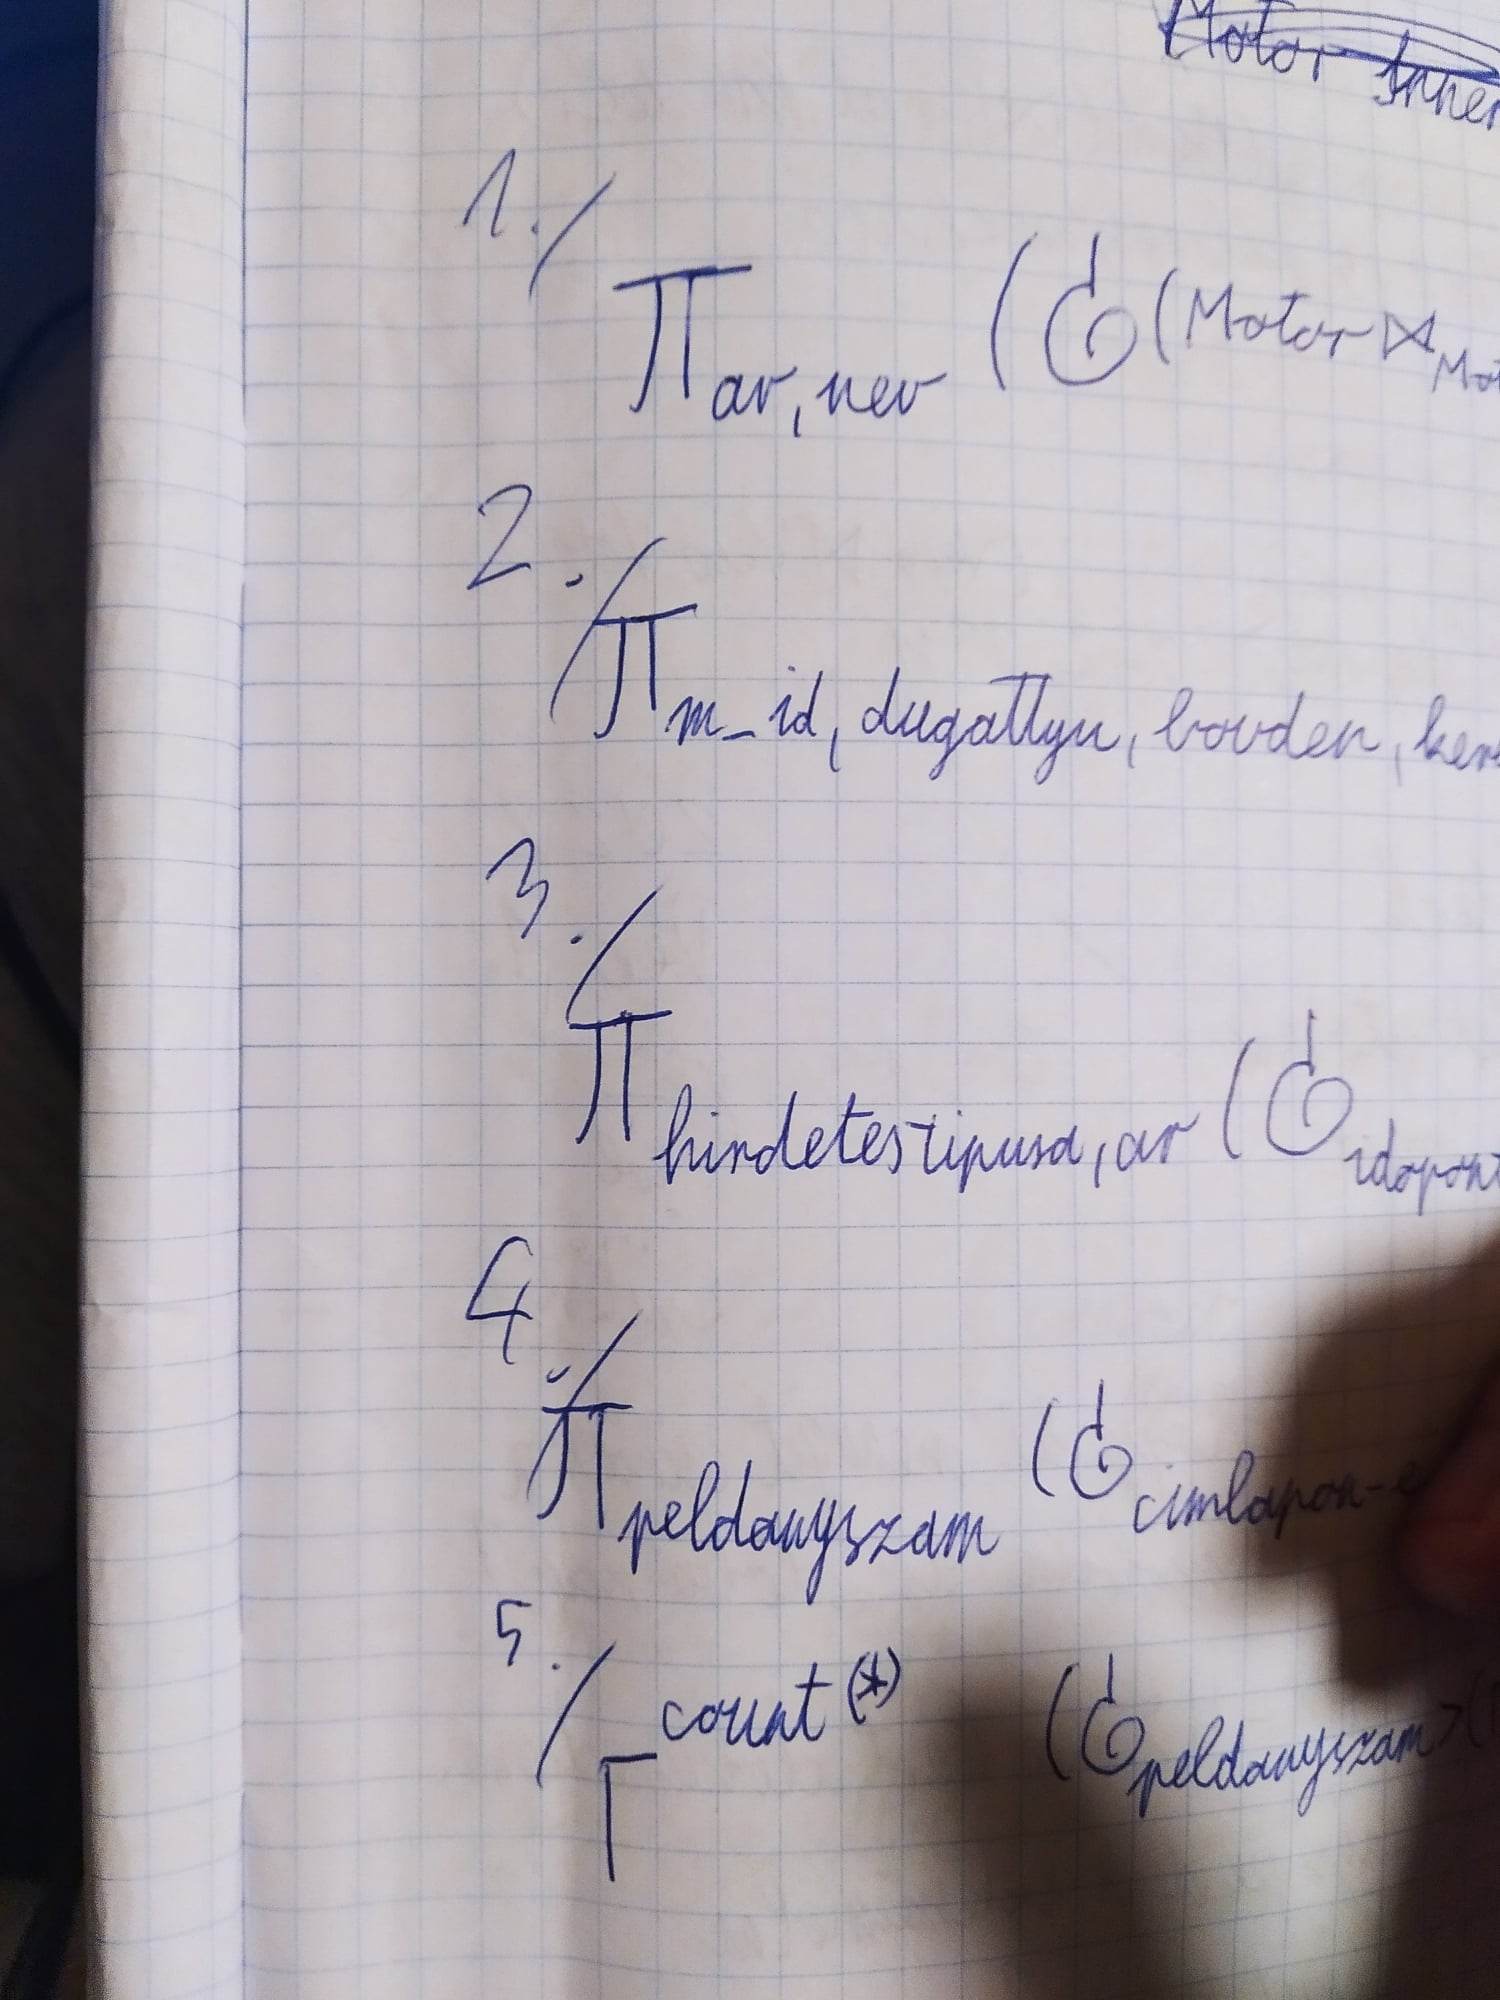 Motor Inner
1./
π ar, nev (σ (Motor ⋈ Mot
2./
π m_id, dugattyu, bovden, ker
3./
π hirdetestipusa, ar (σ idopont
4./
π peldanyszam (σ cimlapon-e
5./
Γ count(*) (σ peldanyszam > (